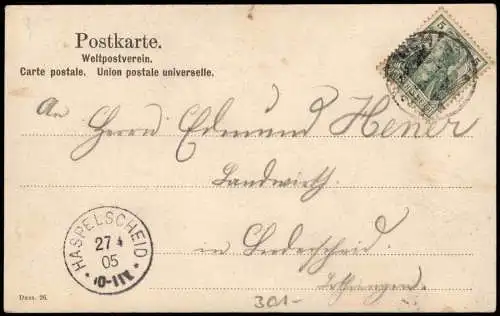 Postkarte.
Weltpostverein.
Carte postale. Union postale universelle.
5
An
Herrn Edmund Hener
Landwirth.
in Liederscheid
Lothringen.
HASPELSCHEID
27 4
05
10-11V
Duss. 26.
301-